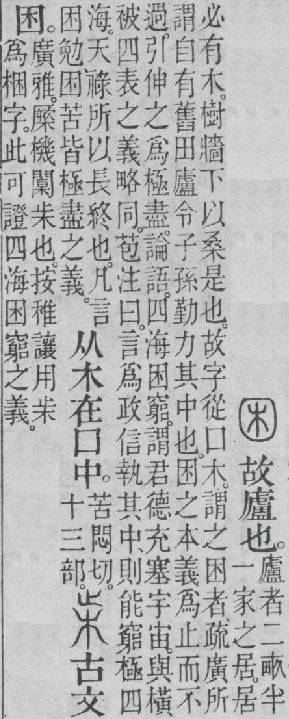 故廬也。
廬者二畞半
一家之居。居
必有木。樹牆下以桑是也。故字從囗木。謂之困者、疏廣所
謂自有舊田廬令子孫勤力其中也。困之本義爲止而不
過。引伸之爲極盡。論語四海困窮。謂君德充塞宇宙。與橫
被四表之義略同。苞注曰。言爲政信執其中。則能窮極四
海。天祿所以長終也。凡言
困勉困苦皆極盡之義。
从木在囗中。
苦悶切。
十三部。
古文
困。
廣雅。橜機闑也。按稚讓用
爲梱字。此可證四海困窮之義。